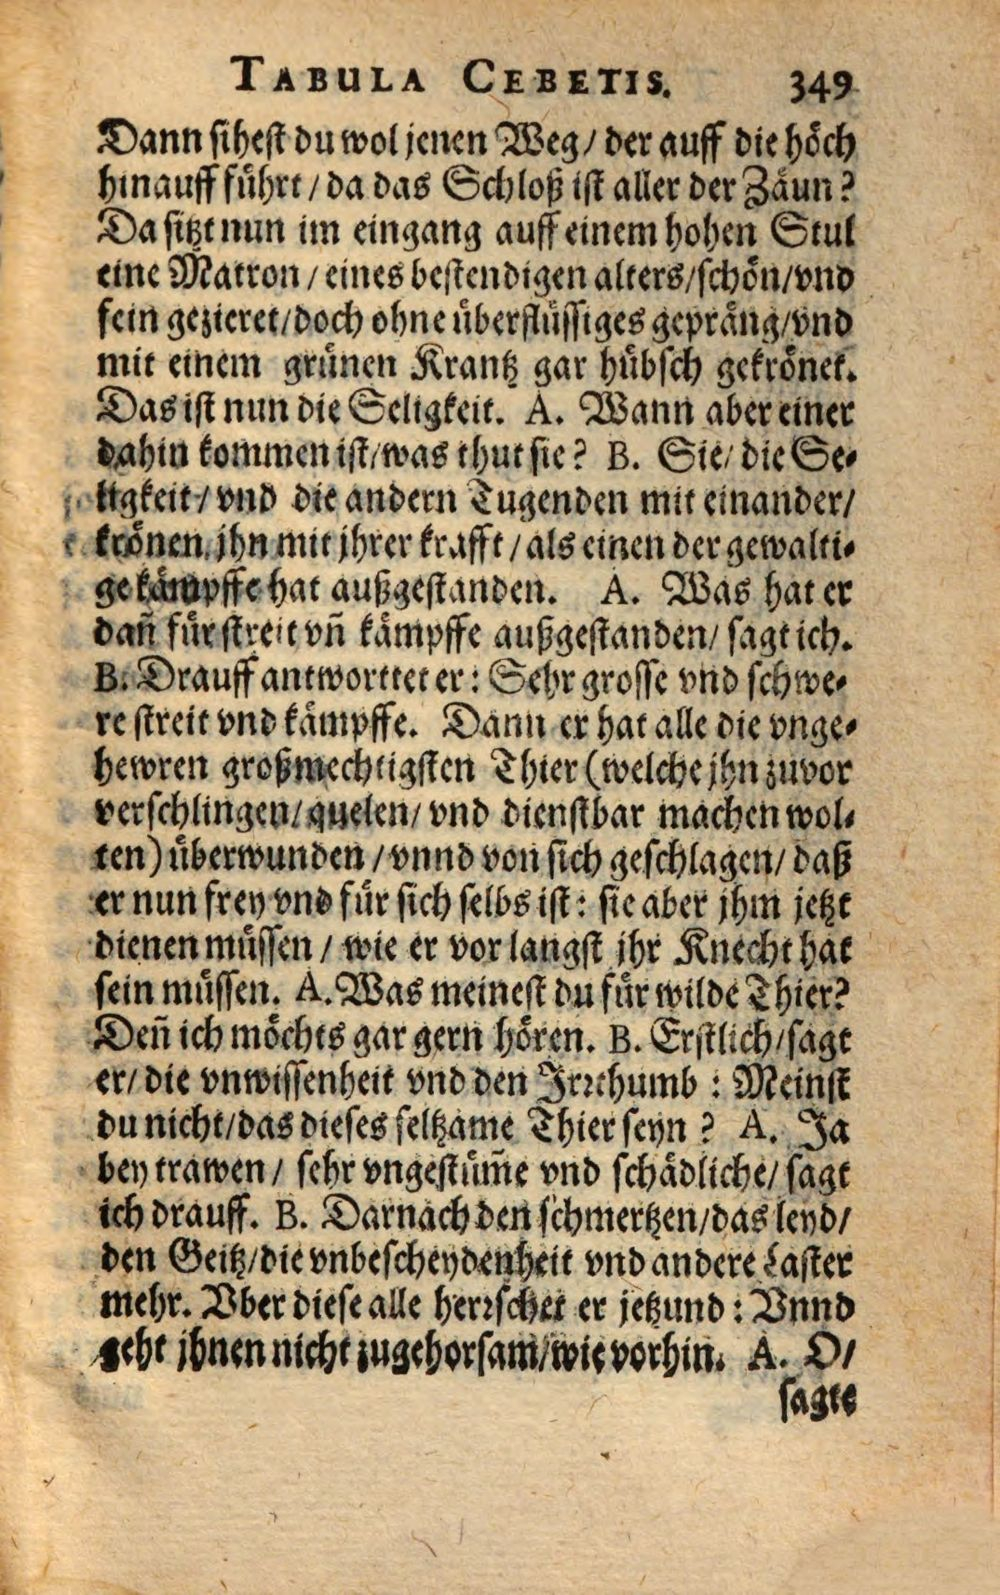 TABULA CEBETIS. 349
Dann sihest du wol jenen Weg/ der auff die höch
hinauff führt / da das Schloß ist aller der Zäun?
Da sitzt nun im eingang auff einem hohen Stul
eine Matron / eines bestendigen alters/schön/vnd
fein gezieret/doch ohne überflüssiges gepräng/vnd
mit einem grünen Krantz gar hübsch gekrönet.
Das ist nun die Seligkeit. A. Wann aber einer
dahin kommen ist/was thut sie? B. Sie/ die Se⸗
ligkeit/ vnd die andern Tugenden mit einander/
krönen, jhn mit jhrer krafft / als einen der gewalti⸗
ge kämpffe hat außgestanden. A. Was hat er
dañ für streit vñ kämpffe außgestanden/ sagt ich.
B. Drauff antworttet er: Sehr grosse vnd schwe⸗
re streit vnd kämpffe. Dann er hat alle die vnge⸗
hewren großmechtigsten Thier (welche jhn zuvor
verschlingen/quelen/ vnd dienstbar machen wol⸗
ten) überwunden / vnnd von sich geschlagen/ daß
er nun frey vnd für sich selbs ist: sie aber jhm jetzt
dienen müssen / wie er vor langst jhr Knecht hat
sein müssen. A. Was meinest du für wilde Thier?
Deñ ich möchts gar gern hören. B. Erstlich/sagt
er/ die vnwissenheit vnd den Jrꝛthumb : Meinst
du nicht/das dieses seltzame Thier seyn ? A. Ja
bey trawen / sehr vngestüm̃e vnd schädliche/ sagt
ich drauff. B. Darnach den schmertzen/das leyd/
den Geitz/die vnbescheydenheit vnd andere Laster
mehr. Vber diese alle herꝛschet er jetzund : Vnnd
geht jhnen nicht zugehorsam/wie vorhin. A. O/
sagte